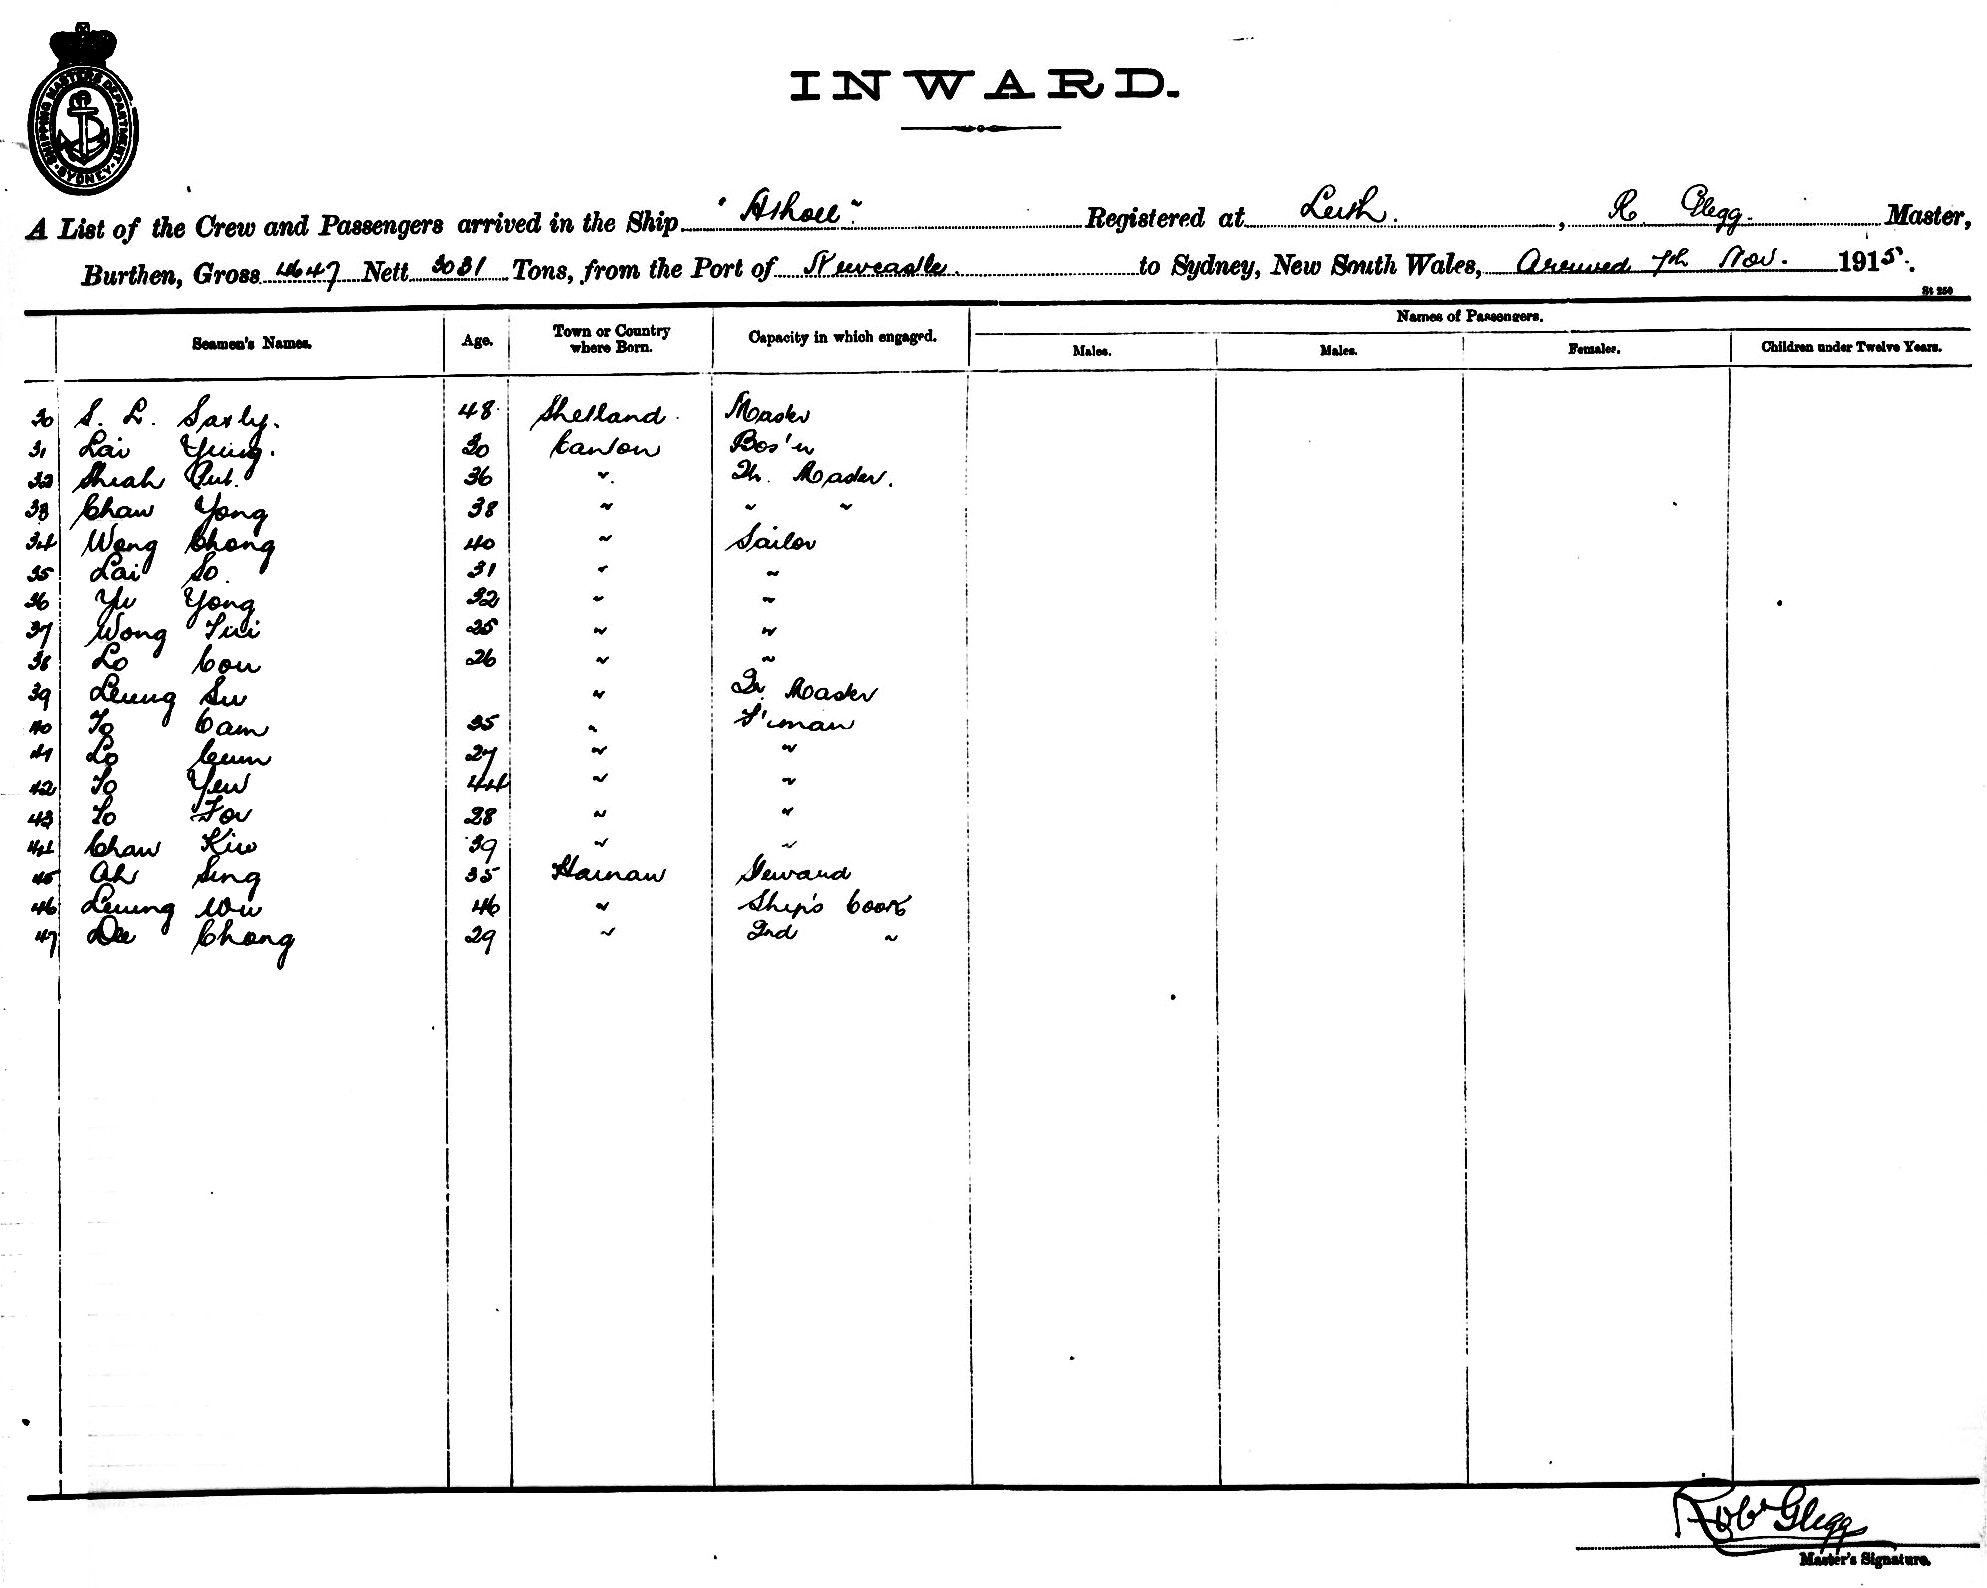 SHIPPING MASTERS DEPARTMENT
SYDNEY
INWARD.
A List of the Crew and Passengers arrived in the Ship "Atholl" Registered at Leith. , R Glegg. Master,
Burthen, Gross 4647 Nett 3031 Tons, from the Port of Newcastle. to Sydney, New South Wales, Arrived 7th Nov. 1915.
St 250
Seamen's Names. Age. Town or Country where Born. Capacity in which engaged. Names of Passengers.
Males. Males. Females. Children under Twelve Years.
30 S. L. Saxby. 48 Shetland Master
31 Lai Yung. 30 Canton Bos'n
32 36 " Qr. Master.
33 Chaw Yong 38 " " "
34 Wong Chong 40 " Sailor
35 Lai So. 31 " "
36 Yu Yong 32 " "
37 Wong Tui 25 " "
38 Lo Cou 26 " "
39 Leung Su " Qr Master
40 To Cam 35 " F'man
41 Lo Cum 27 " "
42 To Yew 44 " "
43 To For 28 " "
44 Chaw Kiw 39 " "
45 Ah Sing 35 Hainan Steward
46 Leung Wu 46 " Ship's Cook
47 Chong 29 " 2nd "
Robt Glegg
Master's Signature.